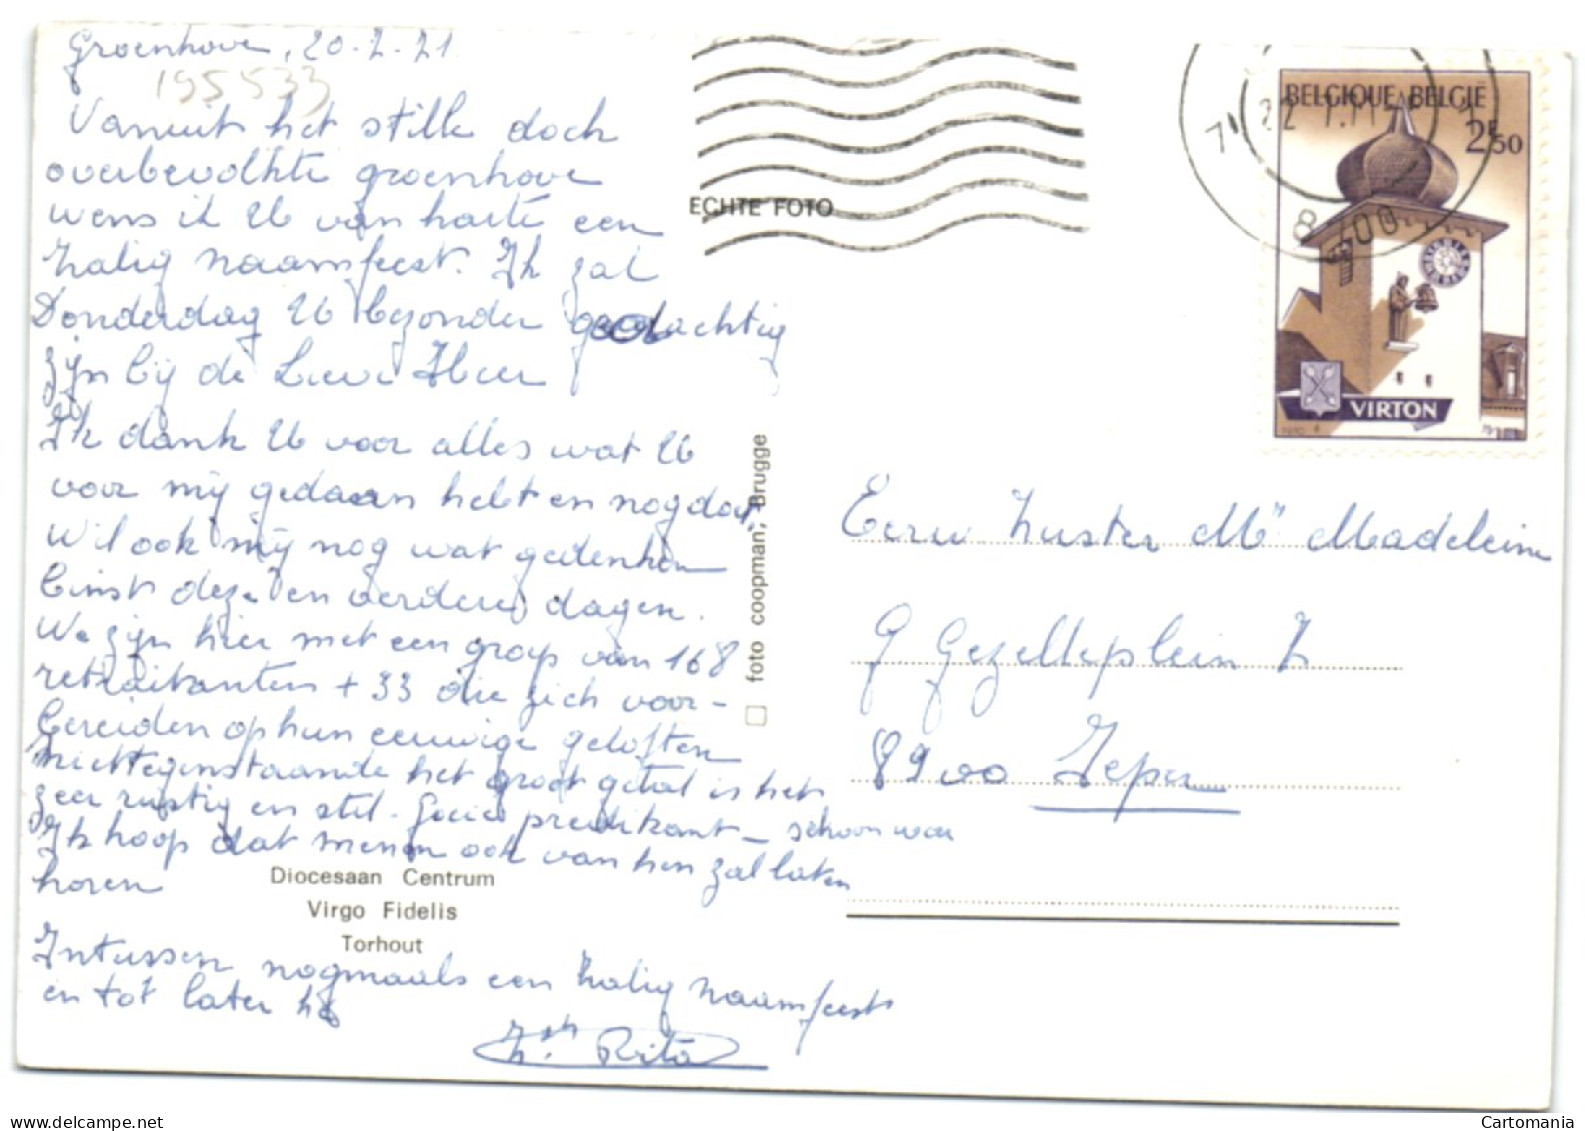 Groenhove, 20-7-71
195533
Vanuit het stille doch
overbevolkte groenhove
wens ik U van harte een
zalig naamfeest. Ik zal
Donderdag U bezonder gedachtig
zijn bij de Lieve Heer
Ik dank U voor alles wat U
voor mij gedaan hebt en nog doet.
Wil ook mij nog wat gedenken
binst deze en verdere dagen.
We zijn hier met een groep van 168
retraitanten + 33 die zich voor-
bereiden op hun eeuwige geloften
Niettegenstaande het groot getal is het
zeer rustig en stil. Goeie predikant – schoon weer
Ik hoop dat mensen ook van hen zal laten
horen
Diocesaan Centrum
Virgo Fidelis
Torhout
Intussen nogmaals een zalig naamfeest
en tot later
Zr. Rita
ECHTE FOTO
foto coopman, Brugge
BELGIQUE BELGIË
2F50
VIRTON
1970
Eerw Zuster Mr Madeleine
G Gezelleplein 7
8900 Ieper
Cartomania